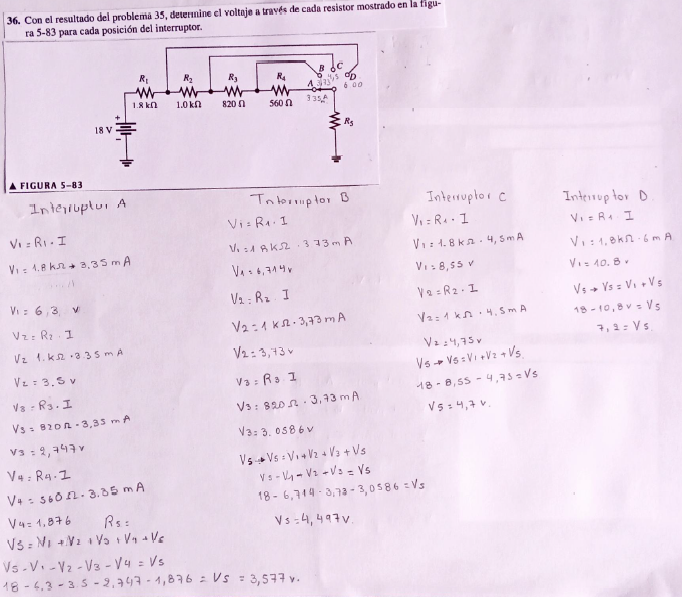 36. Con el resultado del problema 35, determine el voltaje a través de cada resistor mostrado en la figu-
ra 5-83 para cada posición del interruptor.
B C
R1 R2 R3 R4 A D
3,73 4,5 6 00
1.8 kΩ 1.0 kΩ 820 Ω 560 Ω 3 35A
R5
+
18 V
−
▲ FIGURA 5-83
Interruptor A
V1 = R1 . I
V1 = 1.8 kΩ * 3,35 mA
V1 = 6,3 v
V2 = R2 . I
V2 1. kΩ . 3 35 mA
V2 = 3.5 v
V3 = R3 . I
V3 = 820 Ω . 3,35 mA
V3 = 2,747 v
V4 = R4 . I
V4 = 560 Ω . 3.35 mA
V4 = 1,876 R5 =
VS = V1 + V2 + V3 + V4 + V5
VS - V1 - V2 - V3 - V4 = V5
18 - 6,3 - 3.5 - 2,747 - 1,876 = V5 = 3,577 v.
Interruptor B
V1 = R1 . I
V1 = 1 8 kΩ . 3 73 mA
V1 = 6,714 v
V2 = R2 . I
V2 = 1 kΩ . 3,73 mA
V2 = 3,73 v
V3 = R3 . I
V3 = 820 Ω . 3,73 mA
V3 = 3.0586 v
V5 → VS = V1 + V2 + V3 + V5
VS - V1 - V2 - V3 = V5
18 - 6,714 - 3,73 - 3,0586 = V5
V5 = 4,497 v.
Interruptor C
V1 = R1 . I
V1 = 1.8 kΩ . 4,5 mA
V1 = 8,55 v
V2 = R2 . I
V2 = 1 kΩ . 4,5 mA
V2 = 4,75 v
V5 → VS = V1 + V2 + V5
18 - 8,55 - 4,75 = V5
V5 = 4,7 v.
Interruptor D
V1 = R1 I
V1 = 1,8 kΩ . 6 mA
V1 = 10.8 v
V5 → VS = V1 + V5
18 - 10,8 v = V5
7,2 = V5.